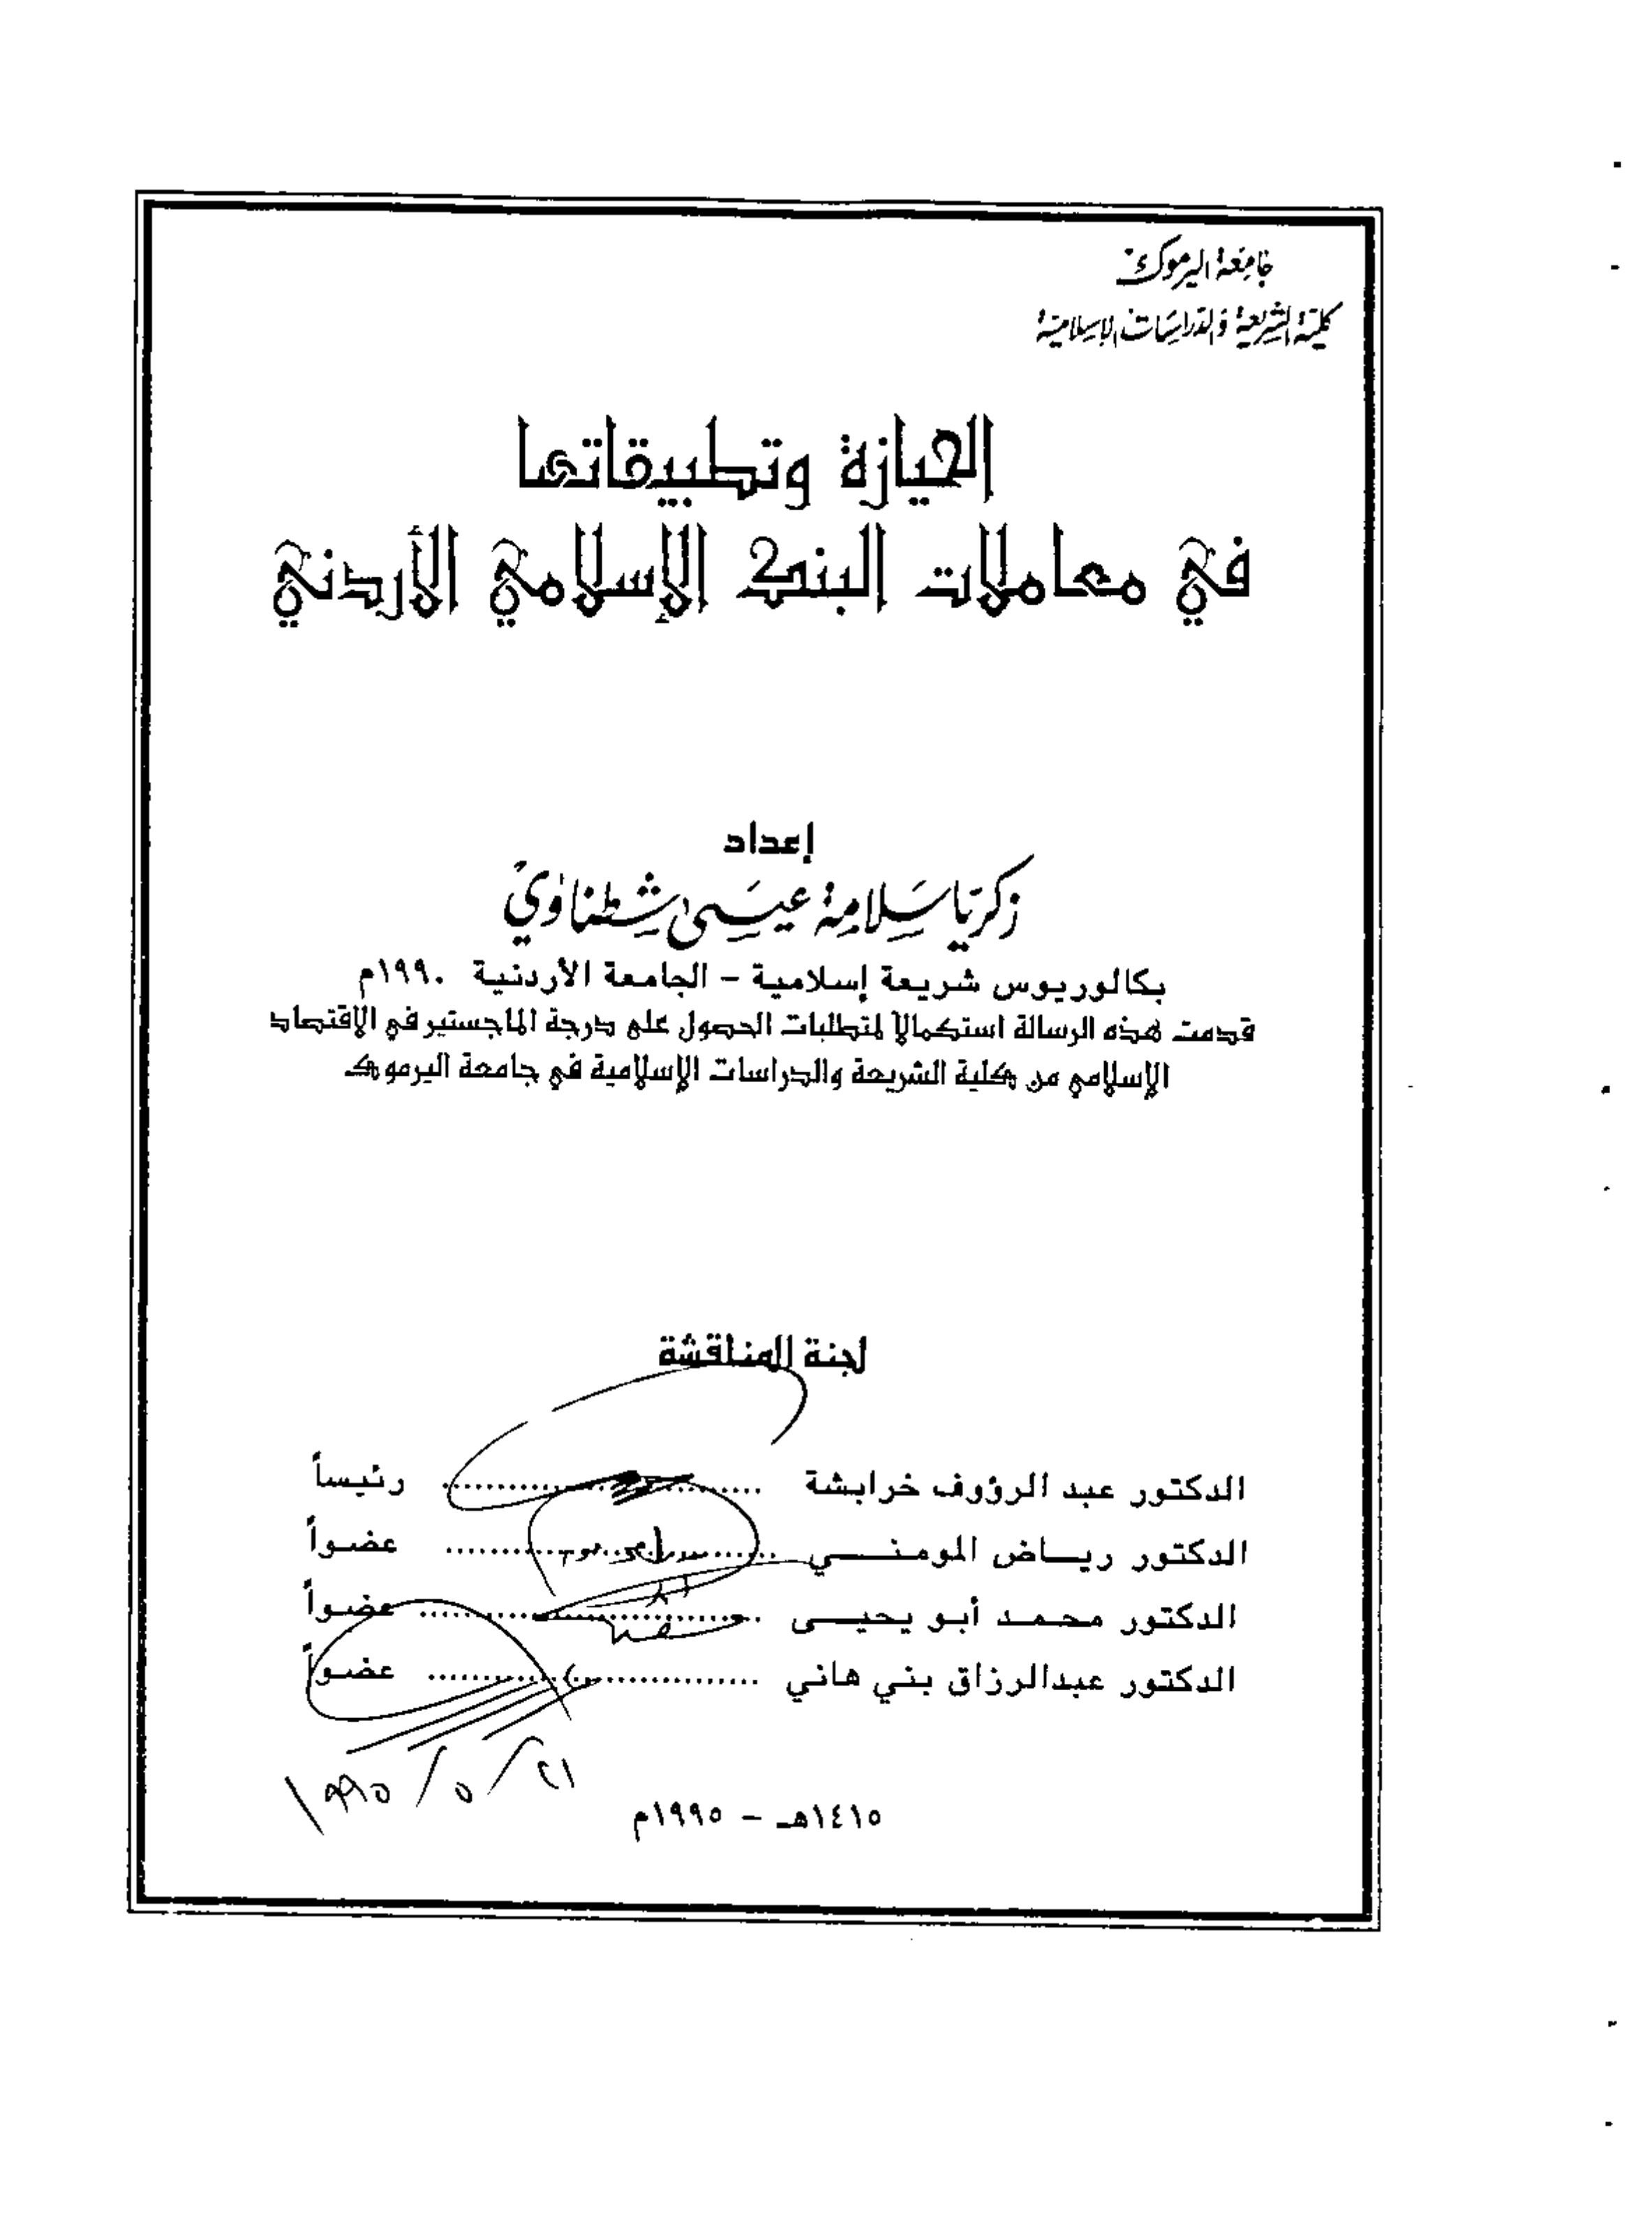 جامعة اليرموك
كلية الشريعة والدراسات الإسلامية
الحيازة وتطبيقاتها
في معاملات البنك الإسلامي الأردني
إعداد
زكريا سلامة عيسى شطناوي
بكالوريوس شريعة إسلامية – الجامعة الأردنية ١٩٩٠م
قدمت هذه الرسالة استكمالاً لمتطلبات الحصول على درجة الماجستير في الاقتصاد
الإسلامي من كلية الشريعة والدراسات الإسلامية في جامعة اليرموك
لجنة المناقشة
الدكتور عبد الرؤوف خرابشة .............................. رئيساً
الدكتور ريـــاض المومنــــي .............................. عضـواً
الدكتور محـمـد أبـو يحيــــى .............................. عضـواً
الدكتور عبدالرزاق بني هاني .............................. عضـواً
٢١/٥/١٩٩٥
١٤١٥هـ – ١٩٩٥م